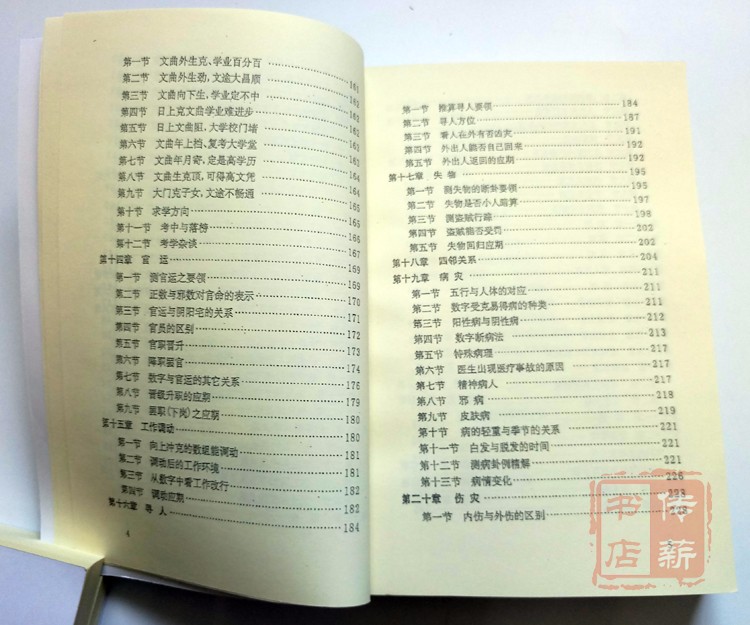 第一节 文曲外生克、学业百分百 161
第二节 文曲外生劲，文途大昌顺 161
第三节 文曲向下生，学业定不中 162
第四节 日上克文曲学业难进步 162
第五节 日上文曲阻，大学校门堵 163
第六节 文曲年上档，复考大学堂 163
第七节 文曲年月寄，定是高学历 164
第八节 文曲生克顶，可得高文凭 164
第九节 大门克子女，文途不畅通 164
第十节 求学方向 165
第十一节 考中与落榜 165
第十二节 考学杂谈 167
第十四章 官 运 169
第一节 测官运之要领 169
第二节 正数与邪数对官命的表示 170
第三节 官运与阴阳宅的关系 171
第四节 官员的区别 172
第五节 官职晋升 173
第六节 降职罢官 174
第七节 数字与官运的其它关系 176
第八节 晋级升职的应期 179
第九节 困职(下岗)之应期 180
第十五章 工作调动 180
第一节 向上冲克的数组能调动 181
第二节 调动后的工作环境 181
第三节 从数字中看工作改行 182
第四节 调动应期 182
第十六章 寻 人 184
4
第一节 推算寻人要领 184
第二节 寻人方位 187
第三节 看人在外有否凶灾 191
第四节 外出人能否自己回来 192
第五节 外出人返回的应期 192
第十七章 失 物 195
第一节 测失物的断卦要领 195
第二节 失物是否小人暗算 197
第三节 测盗贼行踪 198
第四节 盗贼能否受罚 202
第五节 失物回归应期 202
第十八章 四邻关系 204
第十九章 病 灾 211
第一节 五行与人体的对应 211
第二节 数字受克易得病的种类 211
第三节 阳性病与阴性病 211
第四节 数字断病法 213
第五节 特殊病理 217
第六节 医生出现医疗事故的原因 217
第七节 精神病人 217
第八节 邪 病 218
第九节 皮肤病 219
第十节 病的轻重与季节的关系 221
第十一节 白发与脱发的时间 221
第十二节 测病卦例精解 221
第十三节 病情变化 226
第二十章 伤 灾
第一节 内伤与外伤的区别
传薪
书店